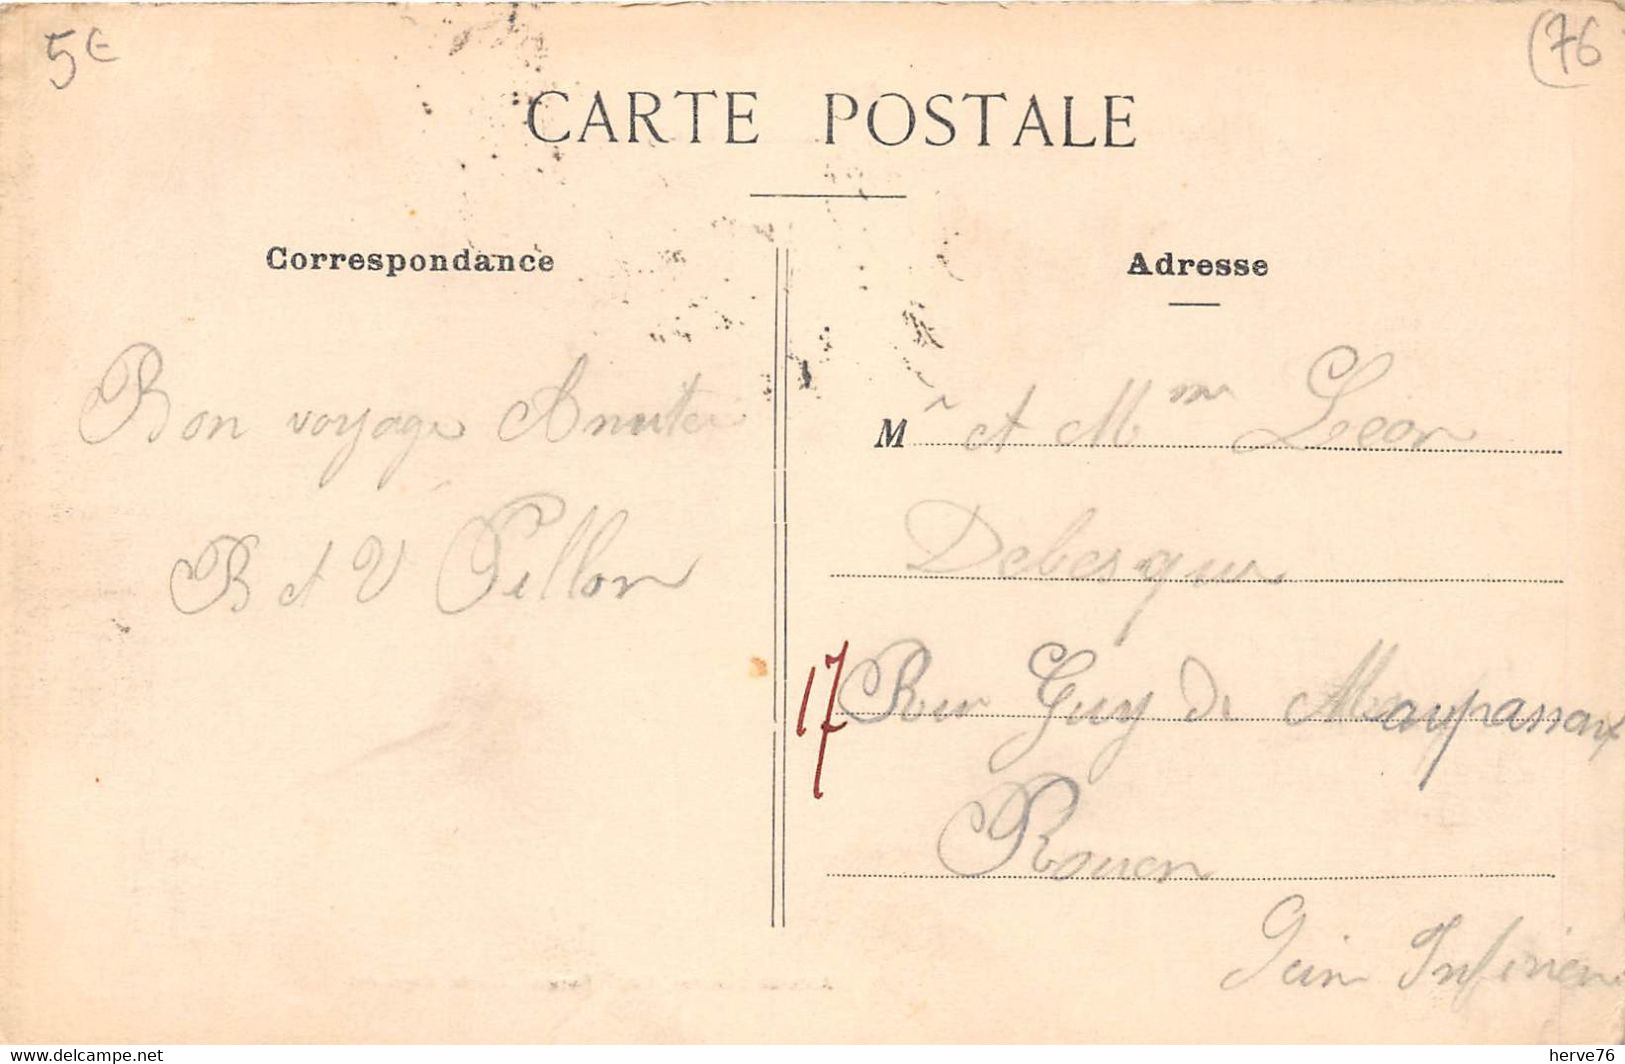 5€
(76
CARTE POSTALE
Correspondance
Adresse
Bon voyage
B et V Pillon
M r et Mme Leon
Debesque
17 Rue Guy de Maupassant
Rouen
Seine Inférieure
www.delcampe.net
herve76